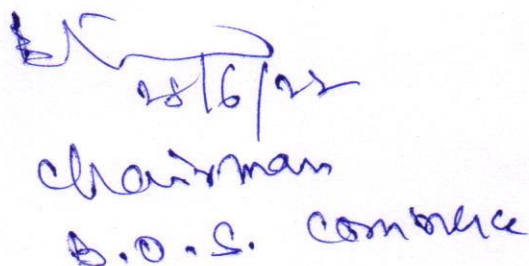 28/6/22
Chairman
B.O.S. Commerce